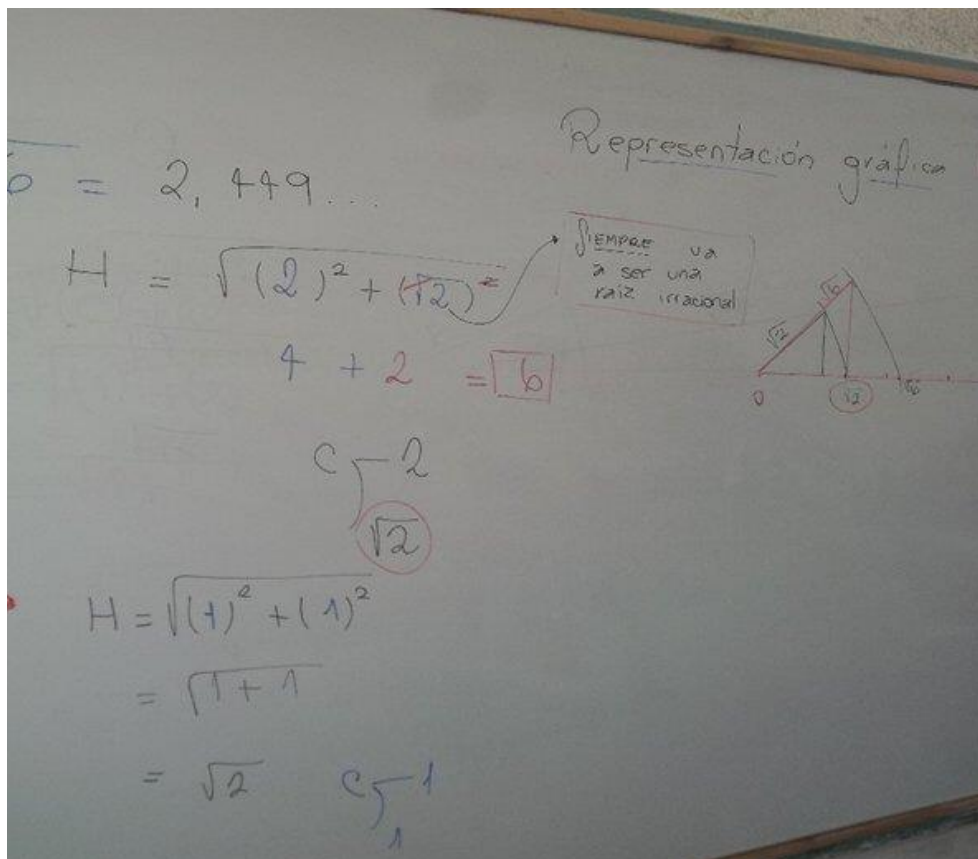 Representación gráfica
√6 = 2,449...
H = √(2)² + (√2)²
SIEMPRE va
a ser una
raíz irracional
4 + 2 = 6
C 2
√2
H = √(1)² + (1)²
= √1 + 1
= √2
C 1
1
√2
√6
0
√2
√6